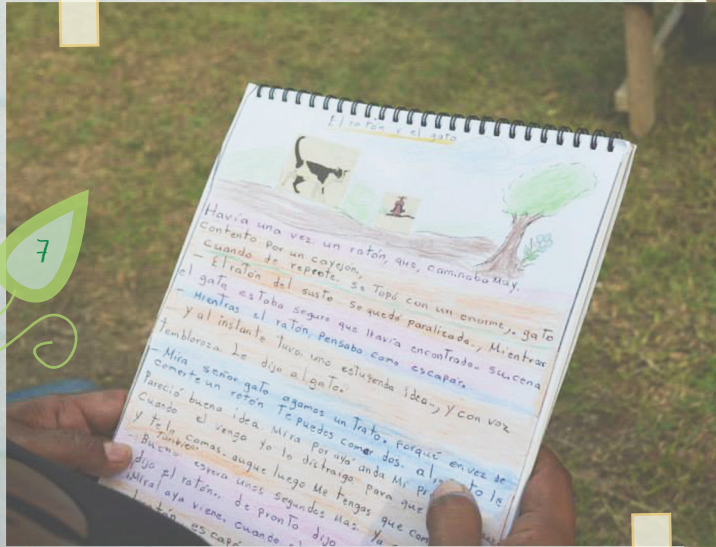 7
El ratón y el gato
Havía una vez un ratón, que, caminaba muy,
contento por un cayejón,
cuando de repente, se topó con un enorme, gato
– El ratón del susto se quedó paralizado., Mientras
el gato estaba seguro que Havía encontrado su cena
– Mientras el ratón, pensaba como escapar.
– y al instante tuvo, una estupenda idea., y con voz
tembloroza. Le dijo al gato.
– Mira señor gato agamos un Trato. porqué en vez de
comerte un ratón Te puedes comer dos. al to le
Pareció buena idea Mira por ayá anda Mi
cuando el venga yo lo distraigo para que
y te lo comas. augue luego Me tengas que com
También
– Bueno espera unos segundos Mas. ya
dijo el ratón., de pronto dijo
¡Mira! aya viene, cuando
ratón escapó